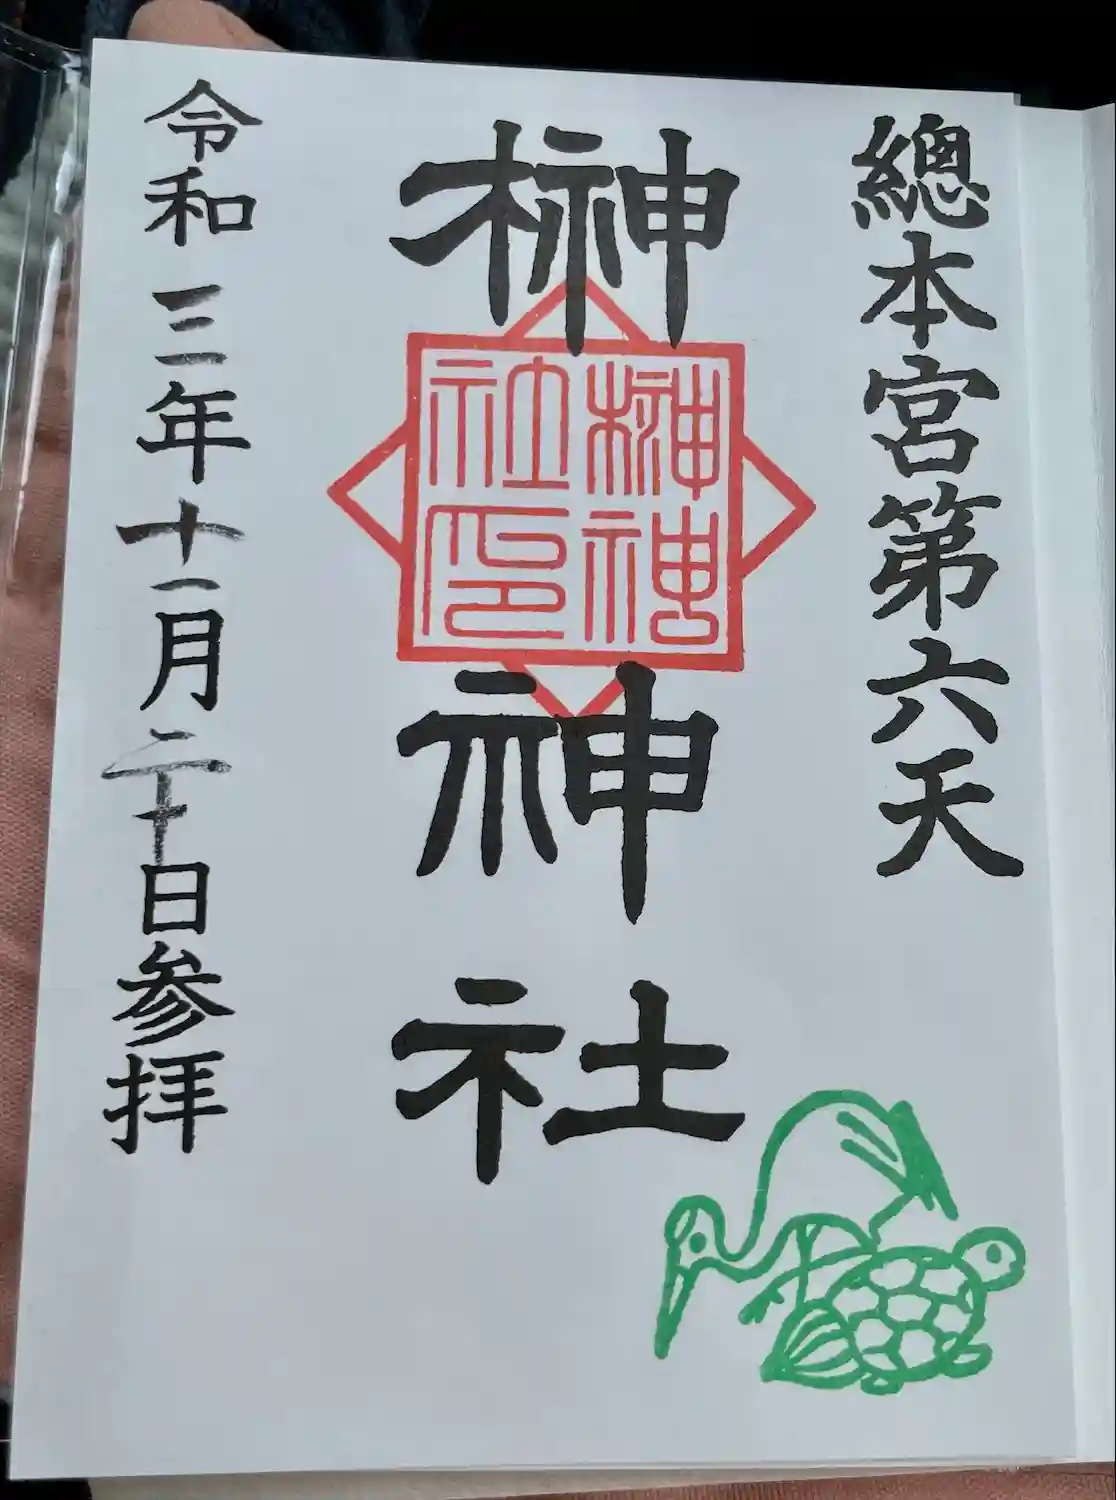 總本宮第六天
榊神社
榊神
社印
令和三年十一月二十日参拝